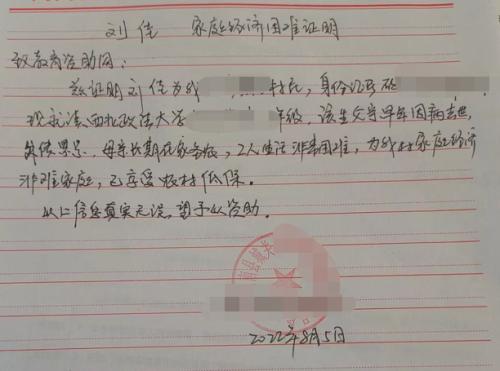 刘佳 家庭经济困难证明
致教育资助网:
兹证明刘佳为我 村民, 身份证号码
现就读西北政法大学 年级, 该生父亲早年因病去世,
母亲长期在家务农, 2人生活非常困难, 为我村家庭经济
困难家庭, 已享受农村低保。
以上信息真实无误, 望予以资助。
2022年8月5日